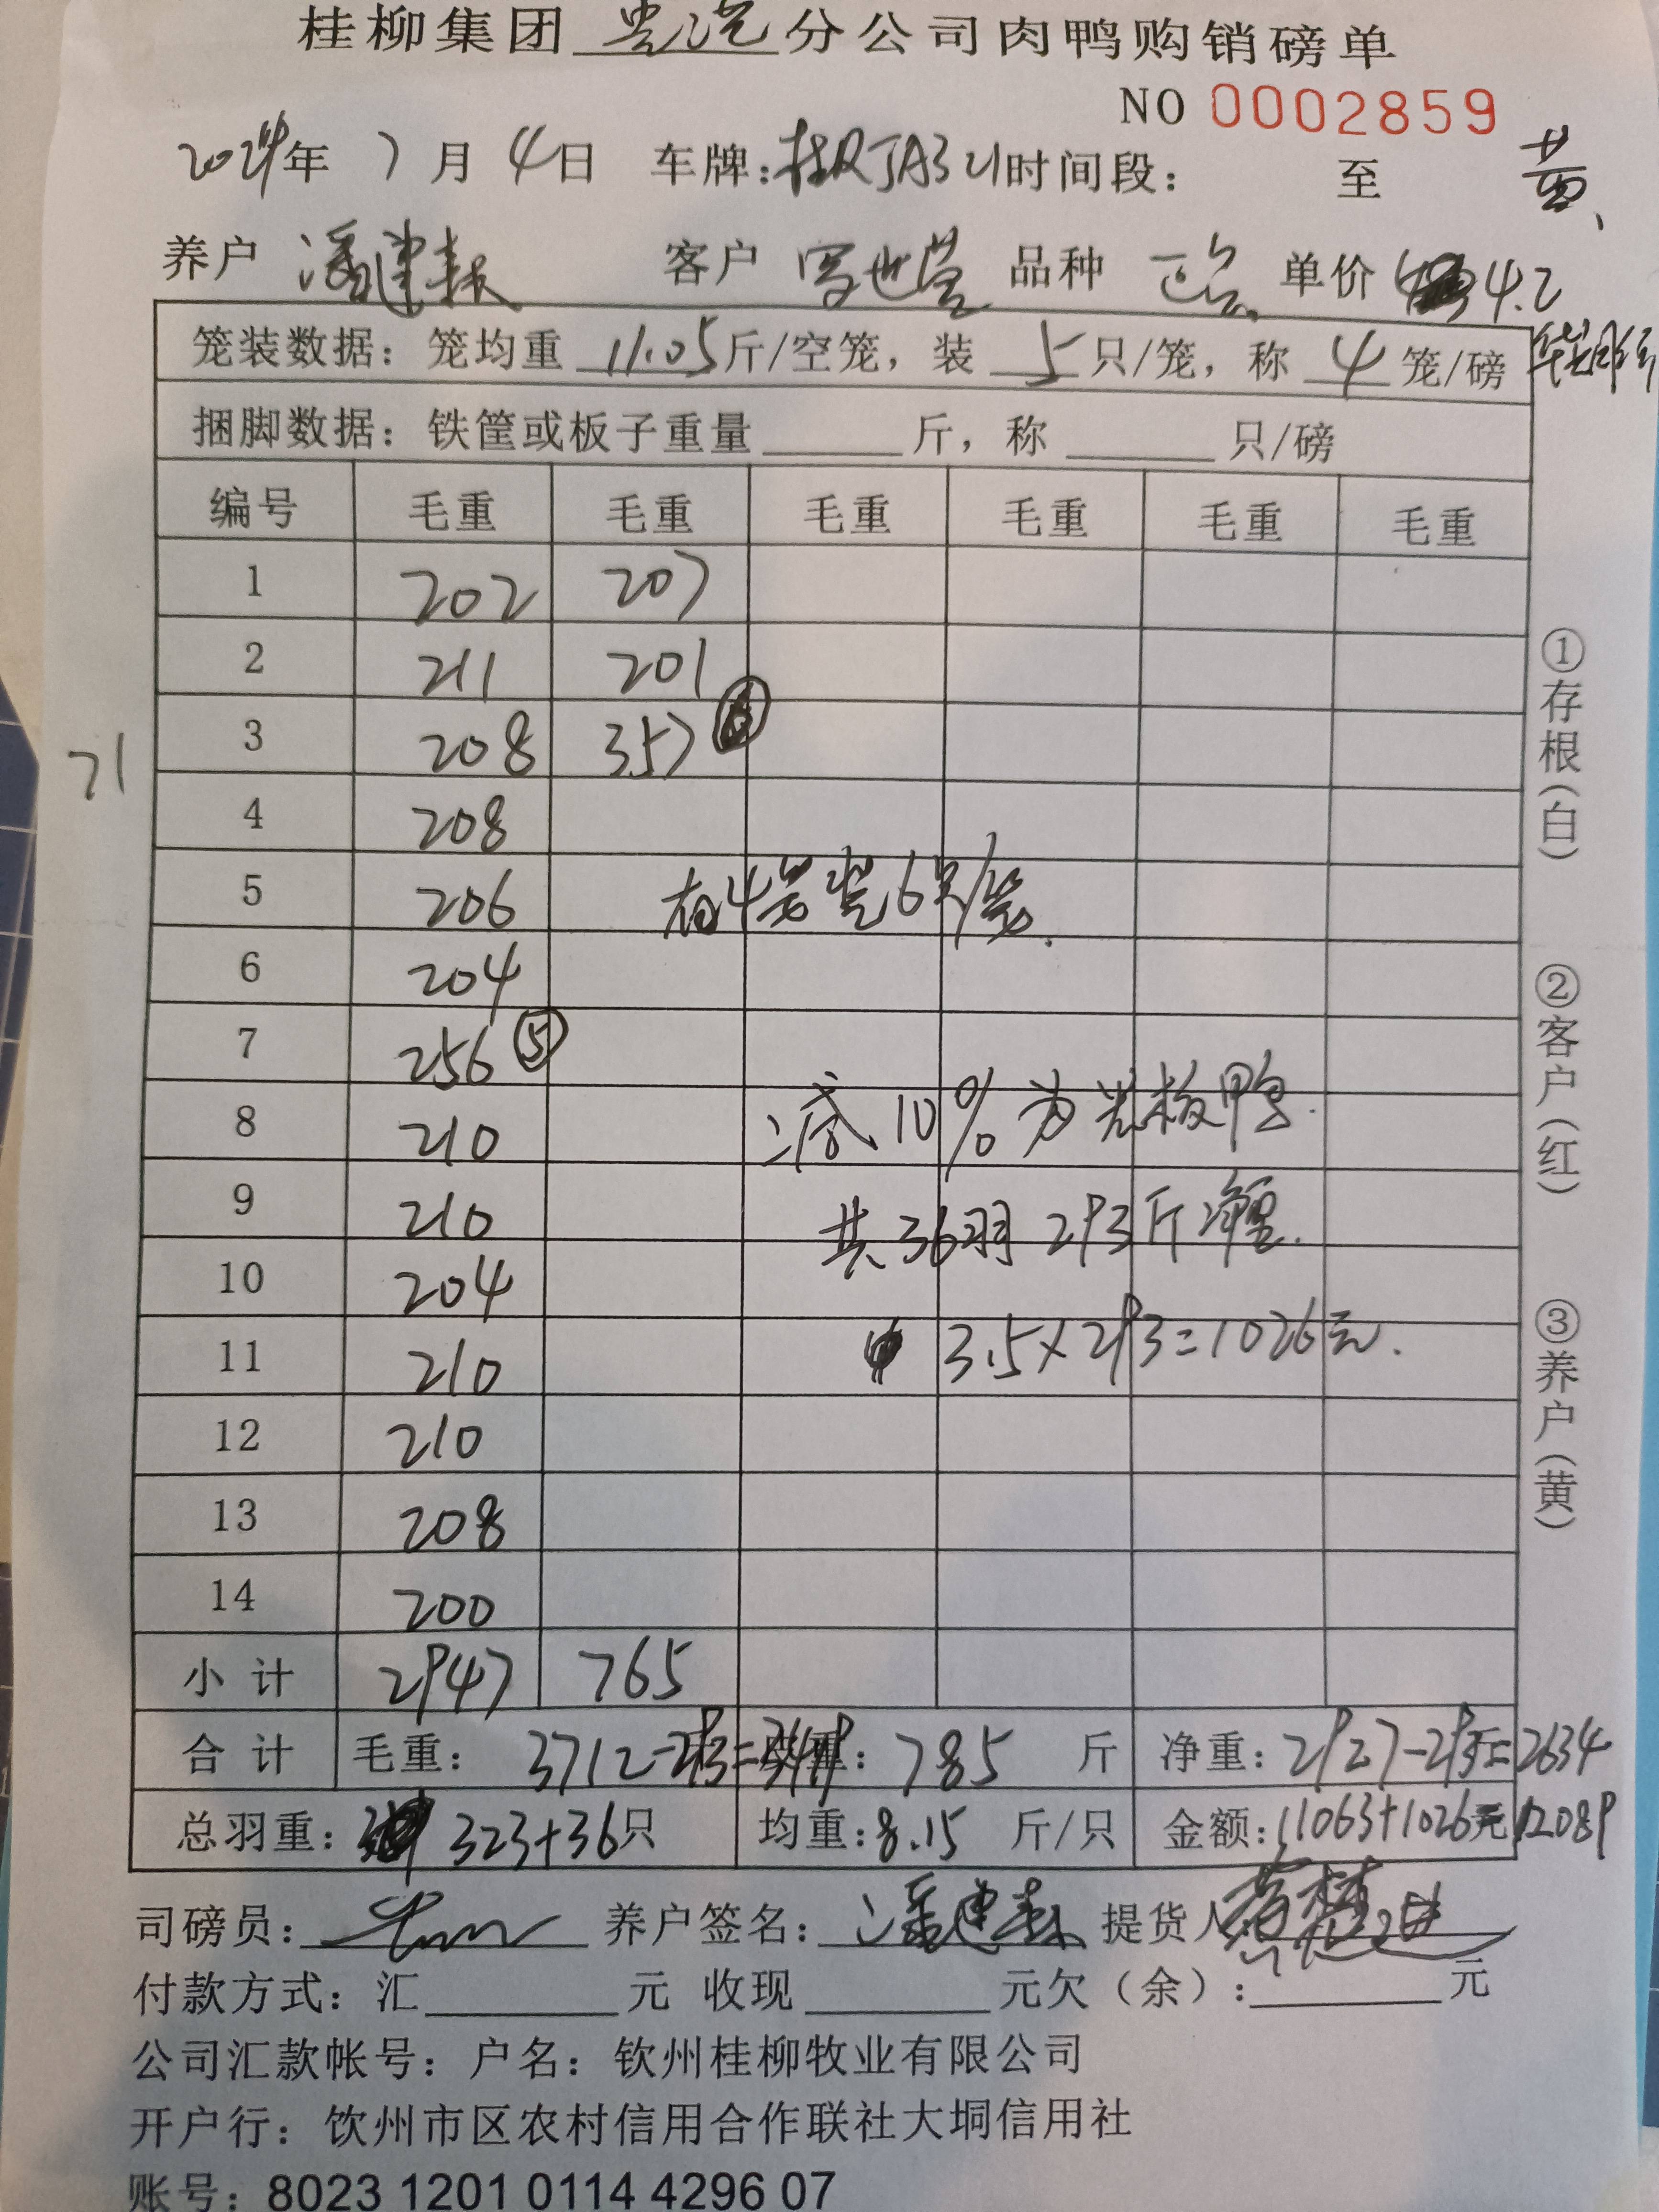 桂柳集团 贵港 分公司肉鸭购销磅单
NO 0002859
2024年 7月 4日 车牌: 时间段: 至 黄
养户 潘建 客户 品种 单价 4.2
笼装数据: 笼均重 11.05 斤/空笼, 装 5 只/笼, 称 4 笼/磅
捆脚数据: 铁筐或板子重量 斤, 称 只/磅
编号 毛重 毛重 毛重 毛重 毛重 毛重
1 202 207
2 211 201
3 208 357
71
4 208
5 206 有4笼装6只/笼.
6 204
7 256 ⑤
8 210 10%为光板鸭.
9 210 共36羽 293斤净重.
10 204
11 210 3.5×293=1026元.
12 210
13 208
14 200
小计 2947 765
合计 毛重: 3712-293=3419 785 斤 净重: 2927-293=2634
总羽重: 323+36只 均重: 8.15 斤/只 金额: 11063+1026元 12089
司磅员: 养户签名: 潘建 提货人
付款方式: 汇 元 收现 元欠(余): 元
公司汇款帐号: 户名: 钦州桂柳牧业有限公司
开户行: 钦州市区农村信用合作联社大垌信用社
账号: 8023 1201 0114 4296 07
①存根(白)
②客户(红)
③养户(黄)